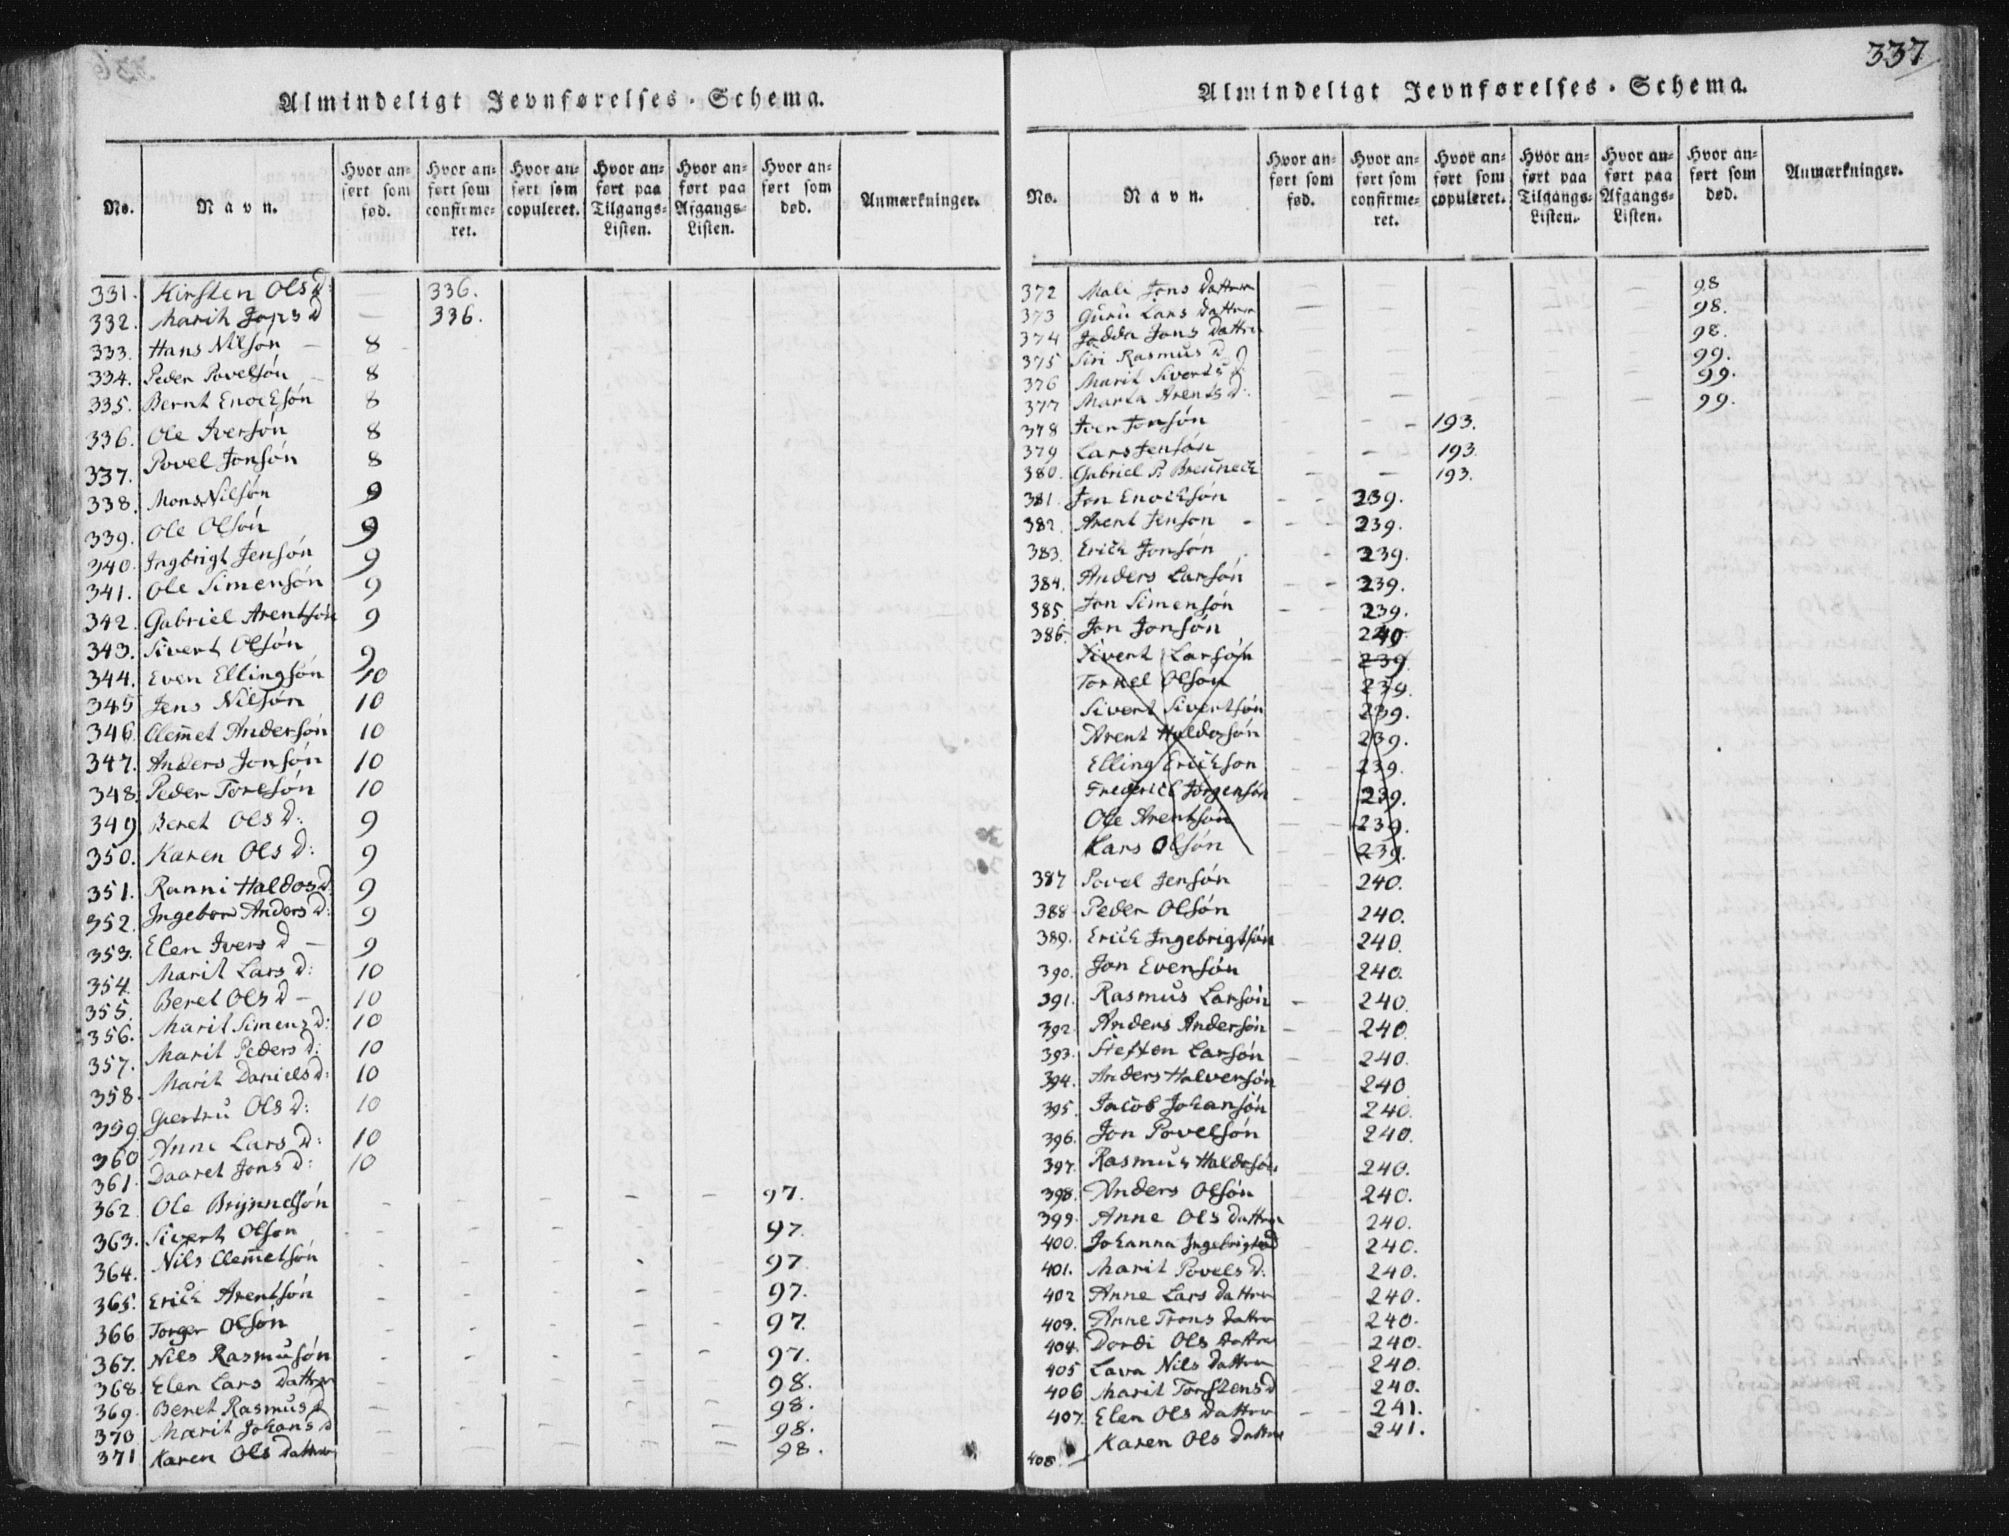 Almindeligt Jevnførelses-Schema.
No. Navn. Hvor anført som fød. Hvor anført som confirmeret. Hvor anført som copuleret. Hvor anført paa Tilgangs-Listen. Hvor anført paa Afgangs-Listen. Hvor anført som død. Anmærkninger.
331. Kirsten Ols D: — 336.
332. Marit Jops D — 336.
333. Hans Nilsón — 8
334. Peder Povelsón — 8
335. Bernt Enocksón 8
336. Ole Iversón 8
337. Povel Jonsón 8
338. Mons Nilsón 9
339. Ole Olsón 9
340. Ingbrigt Jensón 9
341. Ole Simensón 9
342. Gabriel Arentsón 9
343. Sivert Olsón 9
344. Even Ellingsón 10
345 Jens Nilsón 10
346. Clem̄et Andersón 10
347. Anders Jonsón 10
348. Peder Toresón 10
349 Beret Ols D: 9
350. Karen Ols D: 9
351. Ranni Haldos D. 9
352. Ingebor Anders D: 9
353. Elen Ivers D — 9
354. Marit Lars D: 10
355. Beret Ols D — 10
356. Marit Simens D: 10
357. Marit Peders D: 10
358. Marit Daniels D: 10
359. Giertru Ols D: 10
360 Anne Lars D: 10
361. Daaret Jons D: 10
362. Ole Brynnelsón - - - - - 97.
363. Sivert Olson - - - - - 97.
364. Nils Clem̄etsón - - - - - 97
365. Erich Arentsón - - - - - 97.
366 Torger Olsón - - - - - 97.
367. Nils Rasmusón - - - - - 97.
368. Elen Lars Datter - - - - - 98.
369. Beret Rasmus D - - - - - 98.
370 Marit Johans D - - - - - 98.
371 Karen Ols Datter - - - - - 98.
337
Almindeligt Jevnførelses-Schema.
No. Navn. Hvor anført som fød. Hvor anført som confirmeret. Hvor anført som copuleret. Hvor anført paa Tilgangs-Listen. Hvor anført paa Afgangs-Listen. Hvor anført som død. Anmærkninger.
372 Mali Jons Datter — — — — — 98
373 Guru Lars Datter — — — — — 98.
374 Jons Datter - - - - - 98.
375 Siri Rasmus D — — — — — 99.
376 Marit Siverts D: — — — — — 99.
377 Marta Arents D: — — — — — 99.
378 Iver Jonsón - - 193.
379 Lars Jensón - - 193.
380. Gabriel P. - - 193.
381. Jon Enocksón - - 239.
382. Arent Jenson - - - 239.
383. Erich Jonsón - 239.
384. Anders Larsón - - 239.
385. Jon Simensón - - 239.
386. Jon Jonsón 240.
Sivert Larsón - - 239.
Torkel Olsón - - 239.
Sivert Sivertsón 239.
Arent Haldosón - - 239.
Elling Erichson - - 239.
Frederich Jörgensón - 239.
Ole Arentsón - - 239.
Lars Olsón - - 239.
387 Povel Jensón - - 240.
388 Peder Olsón - - 240.
389. Erich Ingebrigtsón - 240.
390. Jon Evensón - - 240.
391. Rasmus Larsón - 240.
392. Anders Andersón - - 240.
393. Steffen Larsón - - 240.
394. Anders Halversón 240.
395. Jacob Johansón 240.
396. Jon Povelsón - - 240.
397. Rasmus Haldosón 240.
398. Anders Olsón - - 240.
399. Anne Ols Datter - 240.
400. Johanna Ingebrigts D - 240.
401. Marit Povels D: - - 240.
402 Anne Lars Datter - - 240.
403. Anne Trons Datter - - 240.
404. Dordi Ols Datter - - 240.
405 Lava Nils Datter 240.
406 Marit Torstens D - - 240.
407. Elen Ols Datter - - 241.
408 Karen Ols Datter - - 241.